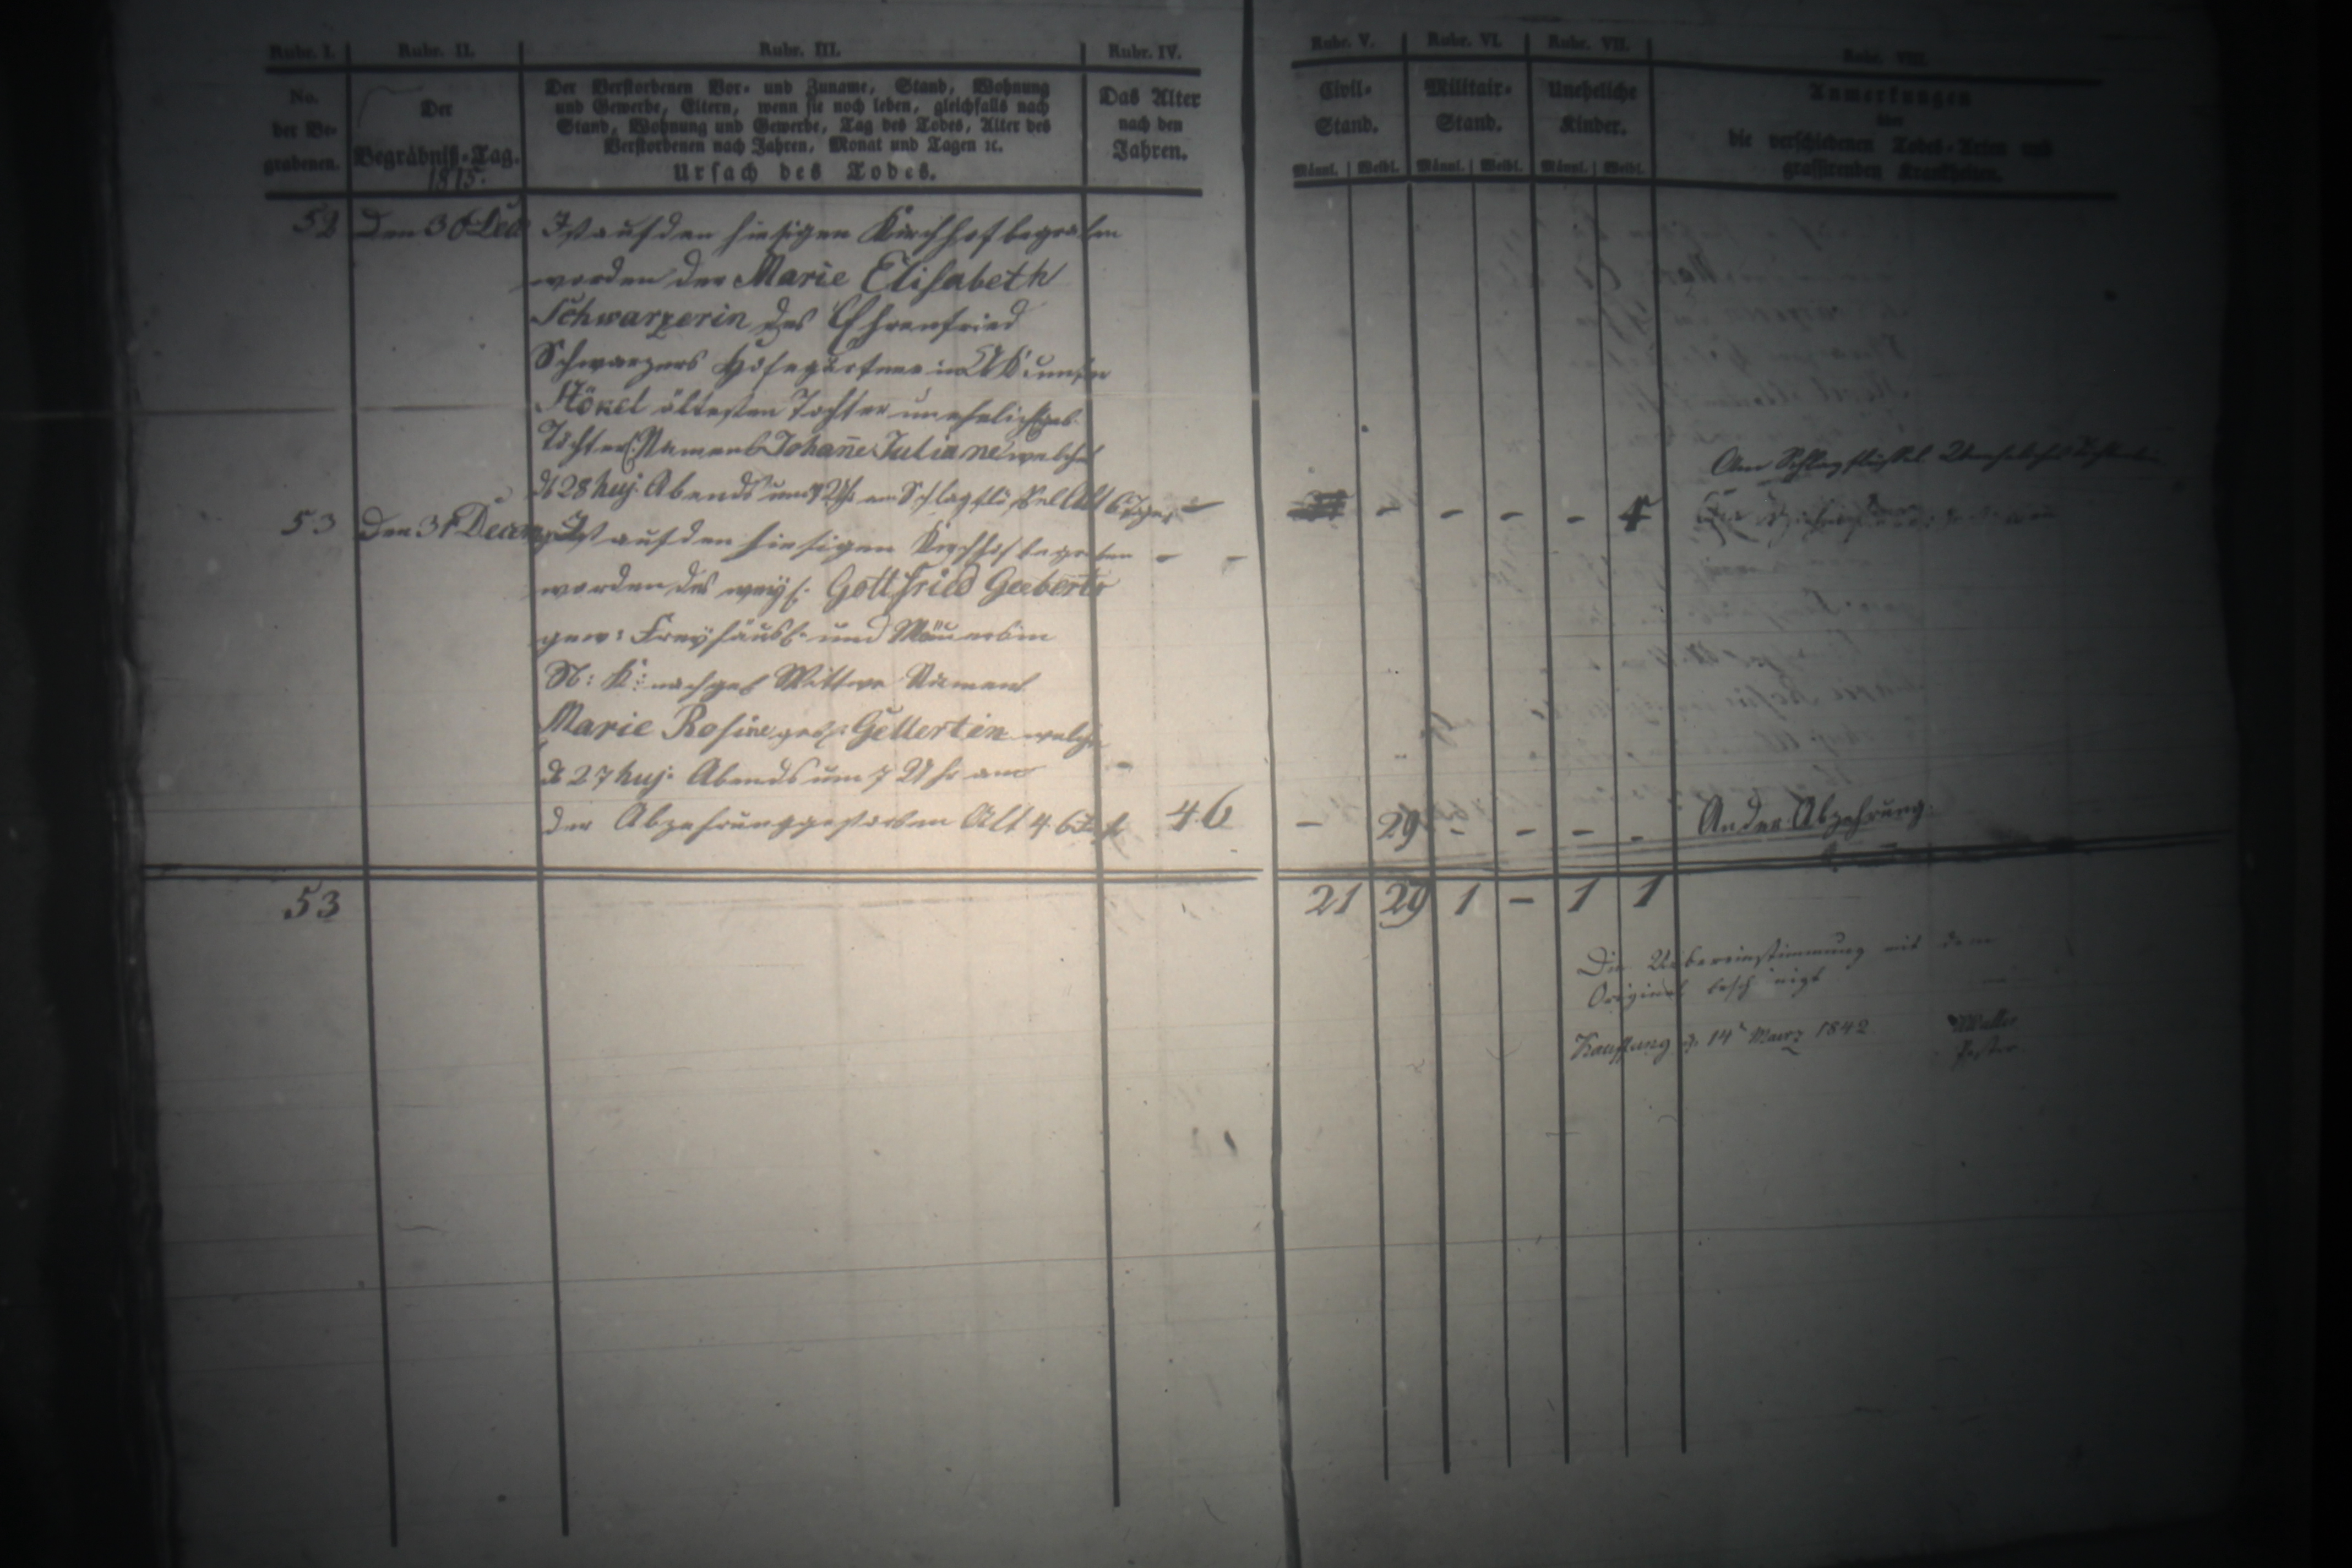 Rubr. I. Rubr. II. Rubr. III. Rubr. IV. Rubr. V. Rubr. VI. Rubr. VII. Rubr. VIII.
No. der Be- grabenen.
Der Begräbniß-Tag. 1815.
Der Verstorbenen Vor- und Zuname, Stand, Wohnung
und Gewerbe, Eltern, wenn sie noch leben, gleichfalls nach
Stand, Wohnung und Gewerbe, Tag des Todes, Alter des
Verstorbenen nach Jahren, Monat und Tagen ꝛc.
Ursach des Todes.
Das Alter nach den Jahren.
Civil- Stand. Männl. Weibl.
Militair- Stand. Männl. Weibl.
Uneheliche Kinder. Männl. Weibl.
Anmerkungen
über
die verschiedenen Todes-Arten und
grassirenden Krankheiten.
52 Den 30 Dec Ist auf den hiesigen Kirchhof begraben
worden der Marie Elisabeth
Schwarzerin des Ehrenfried
Schwarzers Hofegärtner in
Stökel ältesten Tochter unehelich geb.
Tochter Namens Johañe Juliane welche
d 28 huj. Abends um Uhr am Schlagflüssel Alt 6 Tage - - - - - 1 Am Schlagflüssel
53 Den 31 Decem Ist auf den hiesigen Kirchhof begraben - -
worden des weyl. Gottfried Geeberts
gew: Freyhäusl. und
N: K: nachgel Wittwe Namens
Marie Rosine geb. Gellertin welche
d 27 huj: Abends um 7 Uhr an
der Abzehrung gestorben Alt 46 46 - 29 - - - - An der Abzehrung.
53 21 29 1 - 1 1
Die Uebereinstimmung mit dem
Original bescheinigt
Kauffung d. 14 Maerz 1842
Pastor